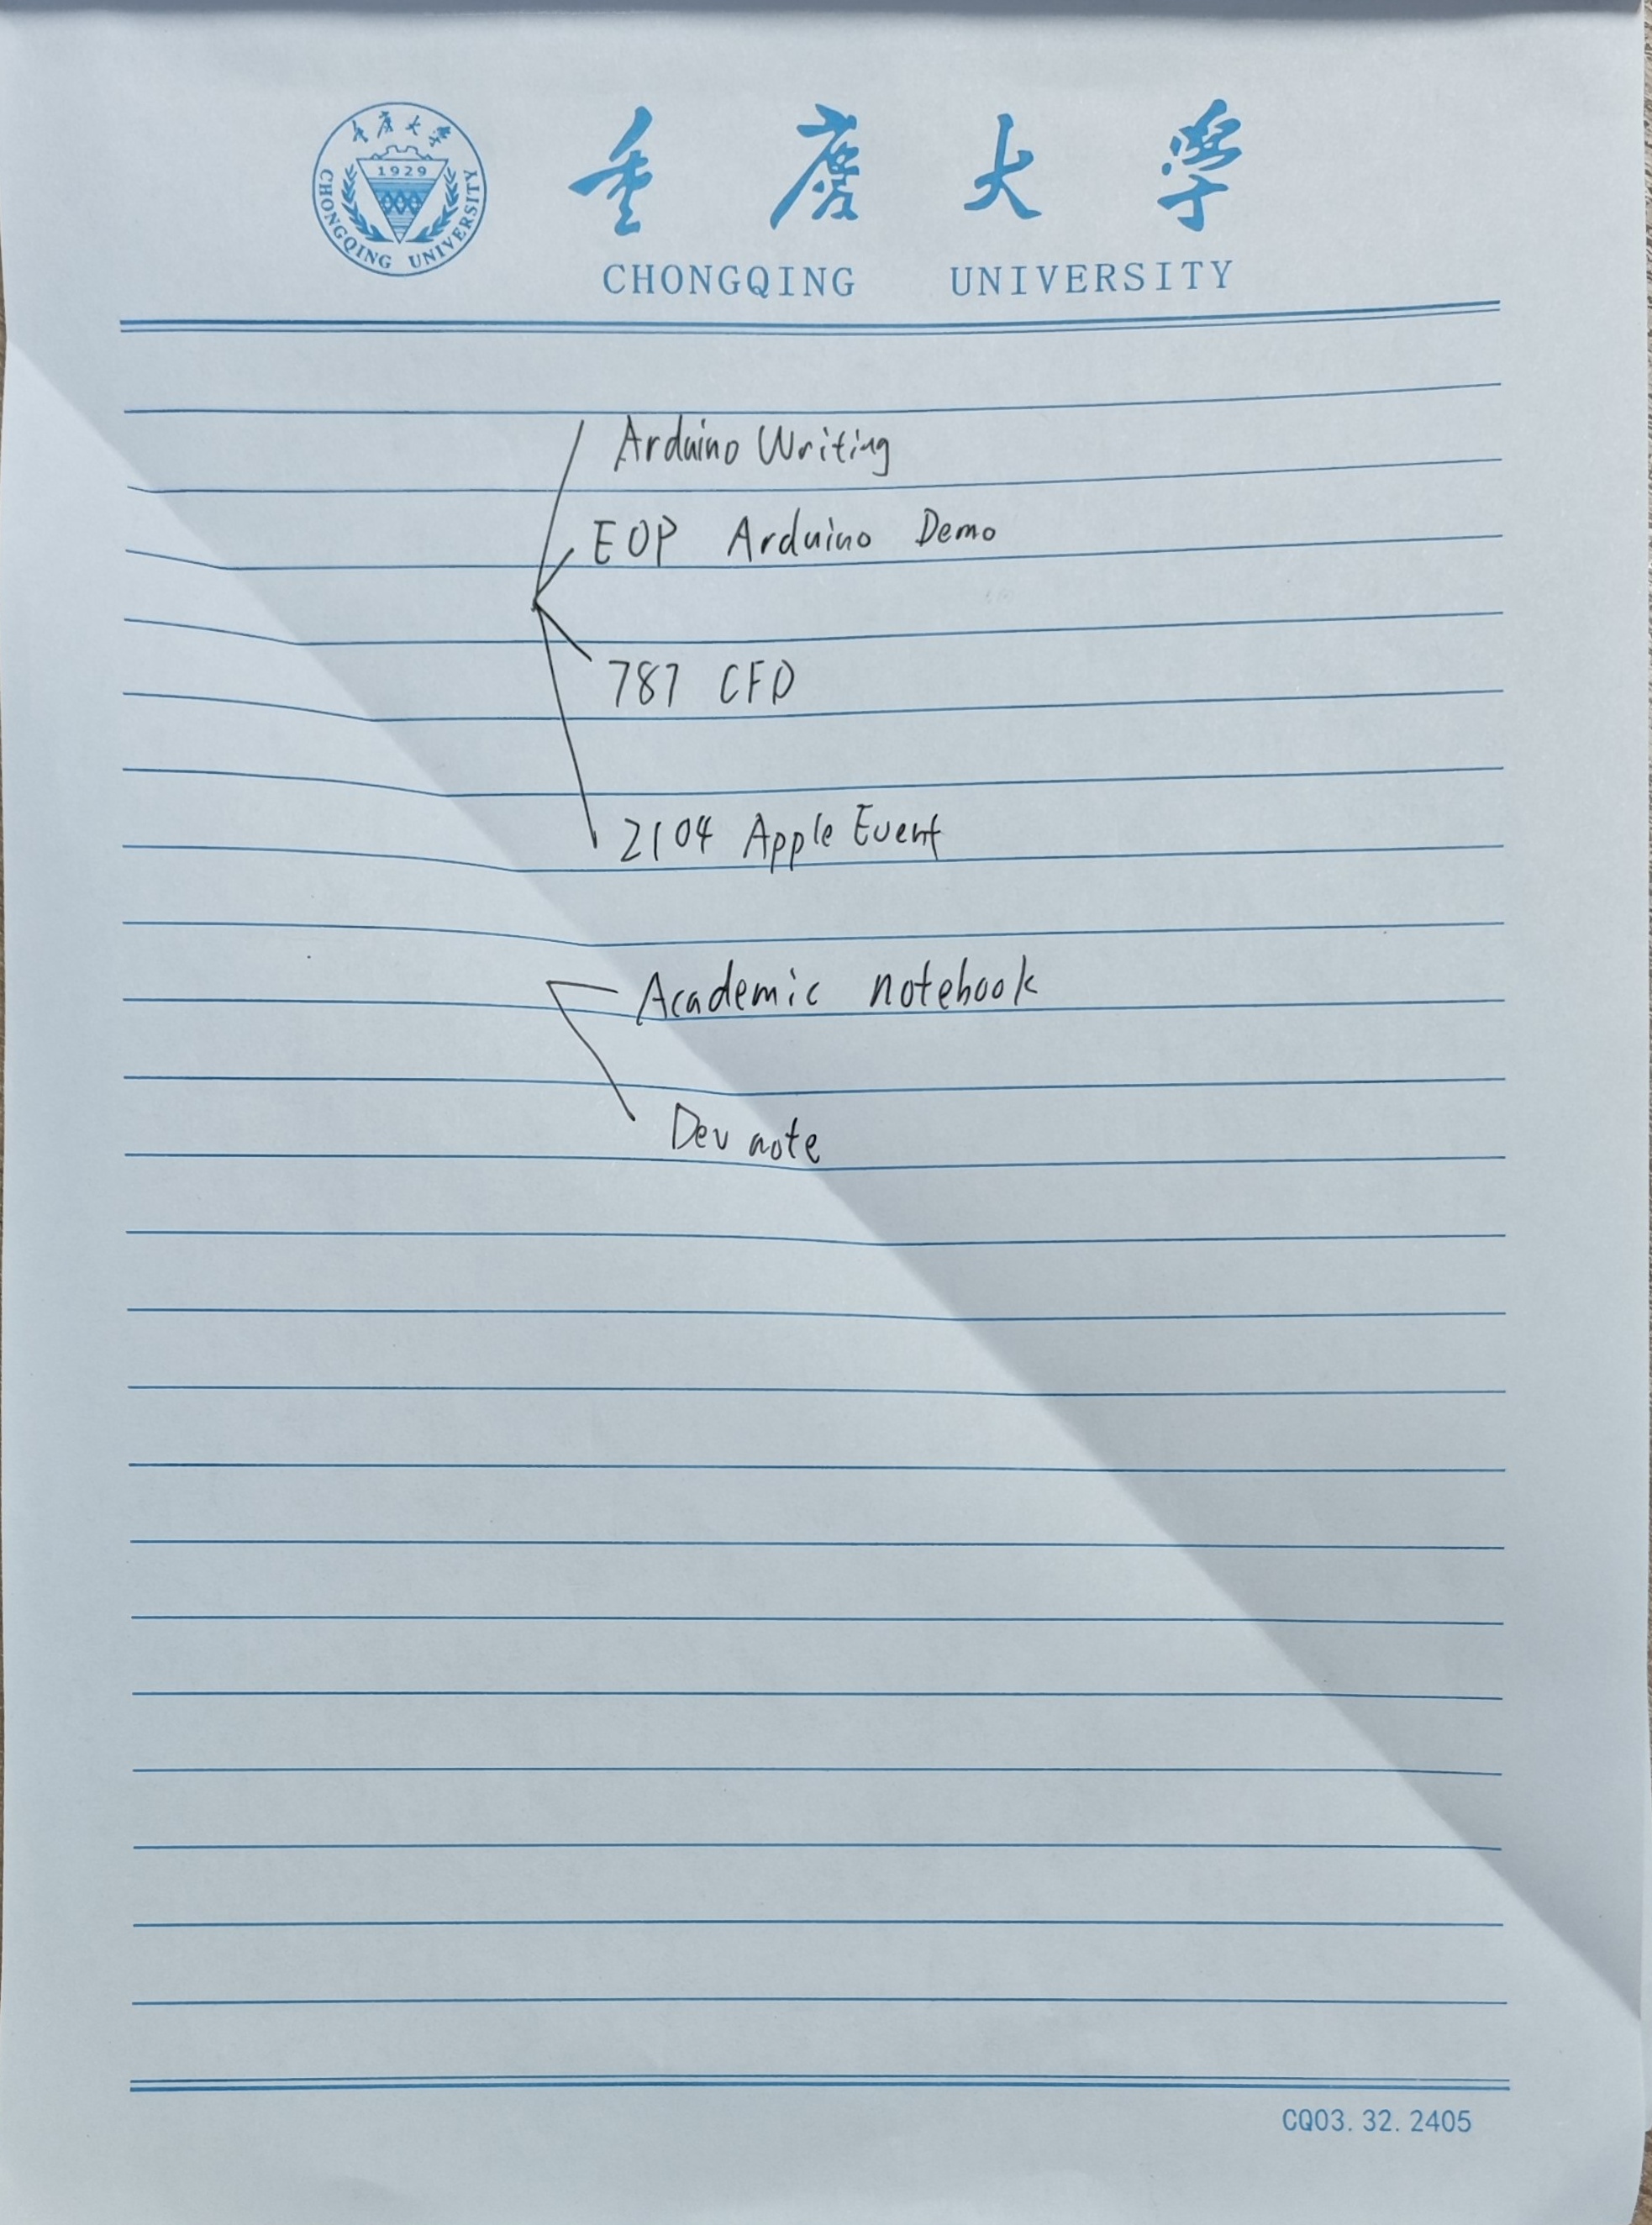 重庆大学
1929
CHONGQING UNIVERSITY
重庆大学
CHONGQING UNIVERSITY
Arduino Writing
EOP Arduino Demo
787 CFD
2104 Apple Event
Academic notebook
Dev note
CQ03.32.2405